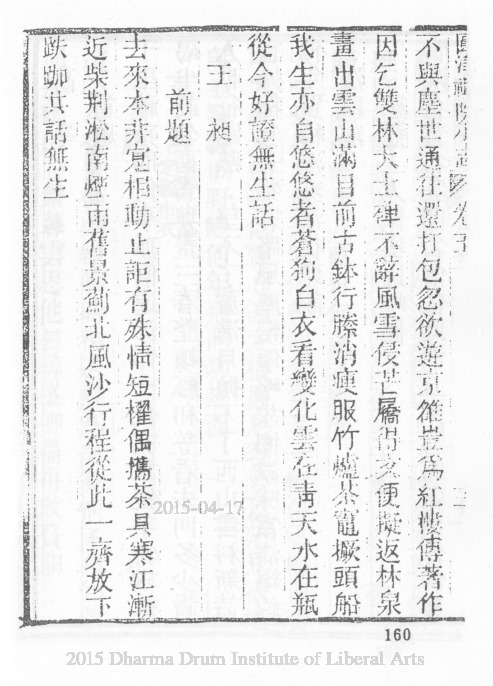 圓津禪院小志 卷五
不與塵世通往還打包忽欲遊京雒豈爲紅樓傳著作
因乞雙林大士碑不辭風雪侵芒屩得攵便擬返林泉
畫出雲山滿目前古鉢行縢消瘦服竹爐茶竈撅頭船
我生亦自悠悠者蒼狗白衣看變化雲在靑天水在瓶
從今好證無生話
王昶
前題
去來本非寬相動止詎有殊情短櫂偶攜茶具寒江漸
近柴荆淞南煙雨舊景薊北風沙行程從此一齊放下
趺跏共話無生
160
2015-04-17
2015 Dharma Drum Institute of Liberal Arts